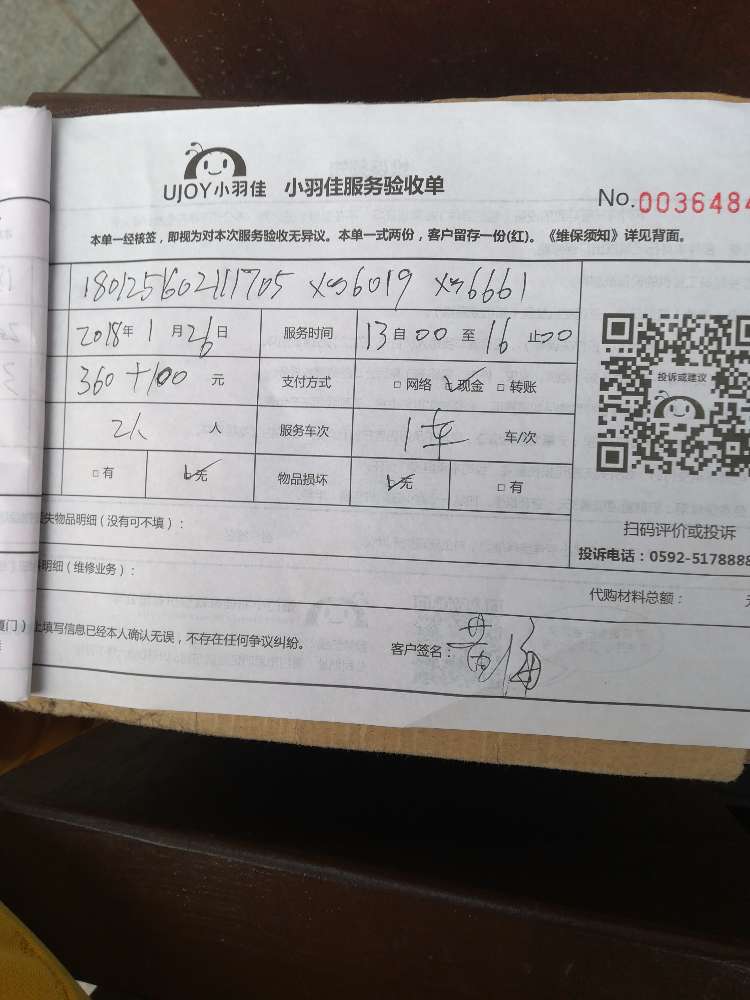 UJOY小羽佳 小羽佳服务验收单
No.0036484
本单一经核签，即视为对本次服务验收无异议。本单一式两份，客户留存一份(红)。《维保须知》详见背面。
180125602111705 xm6019 xm6661
2018年1月26日 服务时间 13自00至16止00
360+100元 支付方式 □网络 现金 □转账
2人 人 服务车次 1车 车/次
□有 无 物品损坏 无 □有
投诉或建议
扫码评价或投诉
投诉电话：0592-5178888
失物品明细（没有可不填）：
明细（维修业务）：
代购材料总额：
厦门）
上填写信息已经本人确认无误，不存在任何争议纠纷。 客户签名：